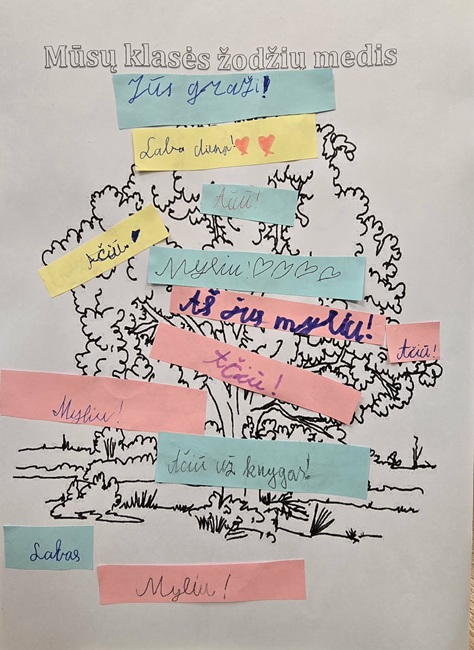 Mūsų klasės žodžių medis
Jūs graži!
Laba diena!
Ačiū!
Ačiū
Myliu!
Aš jus myliu!
Ačiū!
Ačiū!
Myliu!
Ačiū už knygas!
Labas
Myliu!